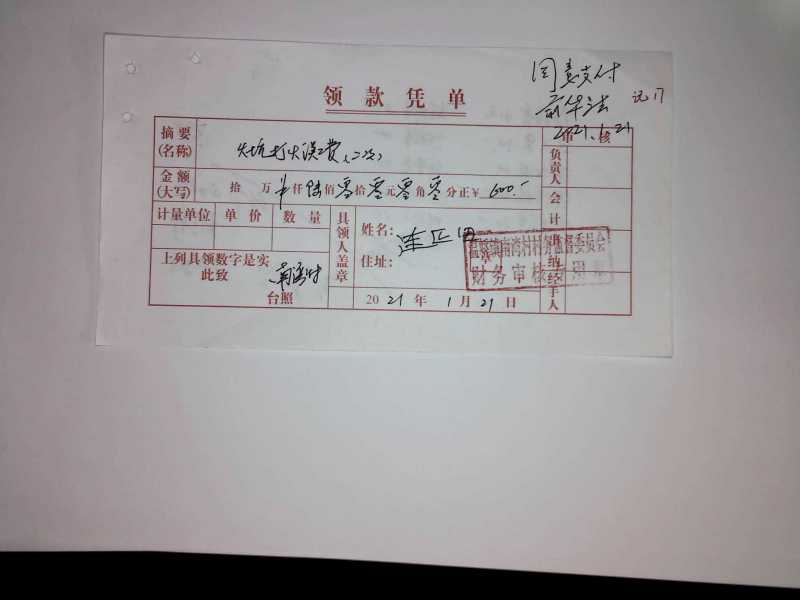 领款凭单
同意支付
2021.1.21
审核
摘要
(名称)
打火误工费(二次)
金额
(大写)
拾 万 仟 陆 佰 零 拾 零 元 零 角 零 分正 ¥ 600.-
计量单位 单价 数量
具领人盖章
姓名:
住址:
上列具领数字是实
此致
南湾村
台照
2021年1月21日
负责人
会计
出纳
经手人
南湾村村务监督委员会
财务审核专用章